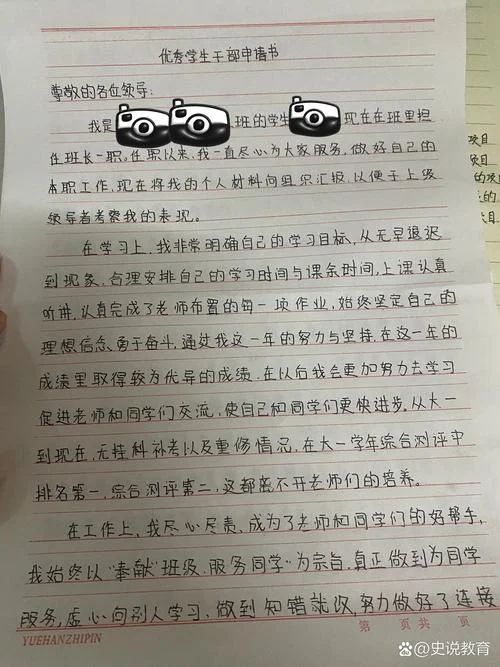 优秀学生干部申请书
尊敬的各位领导：
我是 班的学生 现在在班里担
任班长一职，任职以来，我一直尽心为大家服务，做好自己的
本职工作，现在将我的个人材料向组织汇报，以便于上级
领导者考察我的表现。
在学习上，我非常明确自己的学习目标，从无早退迟
到现象，合理安排自己的学习时间与课余时间，上课认真
听讲，认真完成了老师布置的每一项作业，始终坚定自己的
理想信念，勇于奋斗，通过我这一年的努力与坚持，在这一年的
成绩里取得较为优异的成绩，在以后我会更加努力去学习
促进老师和同学们交流，使自己和同学们更快进步。从大一
到现在，无挂科补考以及重修情况，在大一学年综合测评中
排名第一，综合测评第二，这都离不开老师们的培养。
在工作上，我尽心尽责，成为了老师和同学们的好帮手，
我始终以“奉献”班级、服务同学“为宗旨，真正做到为同学
服务，虚心向别人学习，做到知错就改，努力做好了连接
YUEHANZHIPIN
第 页 共 页
项目
项目
的
目
@史说教育